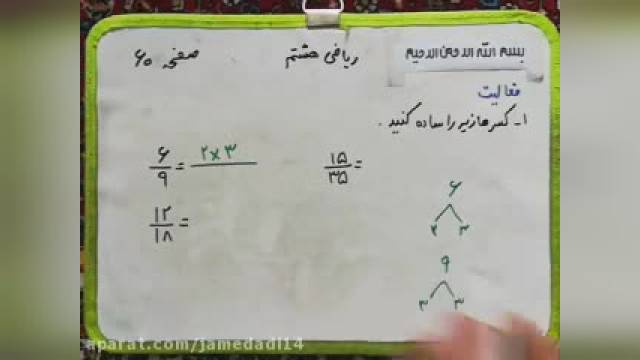 بسم الله الرحمن الرحیم
ریاضی هشتم
صفحه ۶۰
فعالیت
۱- کسرهای زیر را ساده کنید.
۶/۹ = ۲×۳
۱۵/۳۵ =
۱۲/۱۸ =
۶
۲ ۳
۹
۳ ۳
aparat.com/jamedadi14